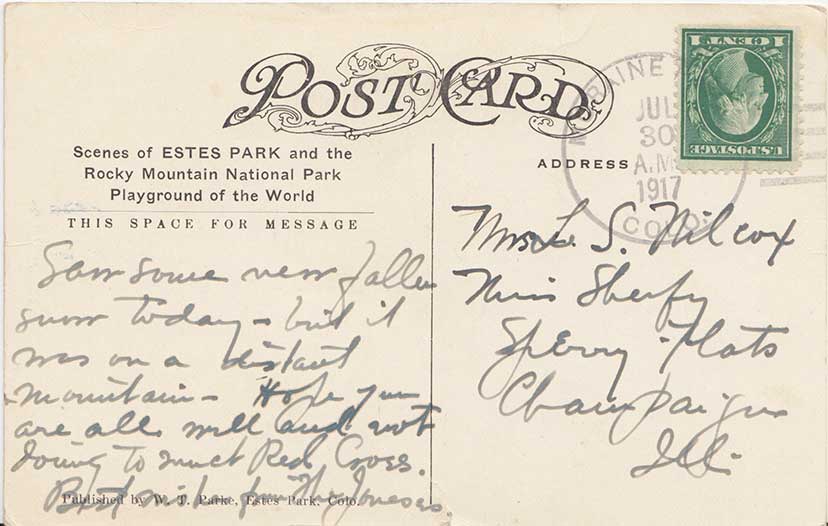 POST CARD
1 CENT 1
U.S. POSTAGE
MORAINE
JUL
30
A.M.
1917
COLO.
Scenes of ESTES PARK and the
Rocky Mountain National Park
Playground of the World
THIS SPACE FOR MESSAGE
Saw some new fallen
snow today - but it
was on a distant
mountain - Hope you
are all well and not
doing to much Red Cross.
Best wishes from the Joneses
Published by W. T. Parke, Estes Park, Colo.
ADDRESS
Mrs. L. S. Wilcox
Miss Sherfy
Sperry Flats
Champaign
Ill.